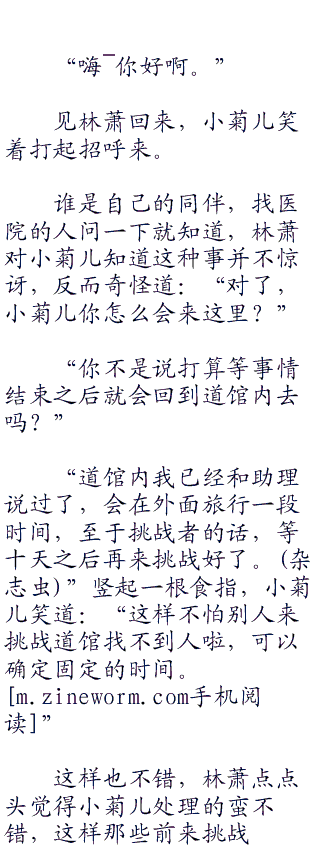 “嗨‾你好啊。”
见林萧回来，小菊儿笑
着打起招呼来。
谁是自己的同伴，找医
院的人问一下就知道，林萧
对小菊儿知道这种事并不惊
讶，反而奇怪道：“对了，
小菊儿你怎么会来这里？”
“你不是说打算等事情
结束之后就会回到道馆内去
吗？”
“道馆内我已经和助理
说过了，会在外面旅行一段
时间，至于挑战者的话，等
十天之后再来挑战好了。(杂
志虫)”竖起一根食指，小菊
儿笑道：“这样不怕别人来
挑战道馆找不到人啦，可以
确定固定的时间。
[m.zineworm.com手机阅
读]”
这样也不错，林萧点点
头觉得小菊儿处理的蛮不
错，这样那些前来挑战